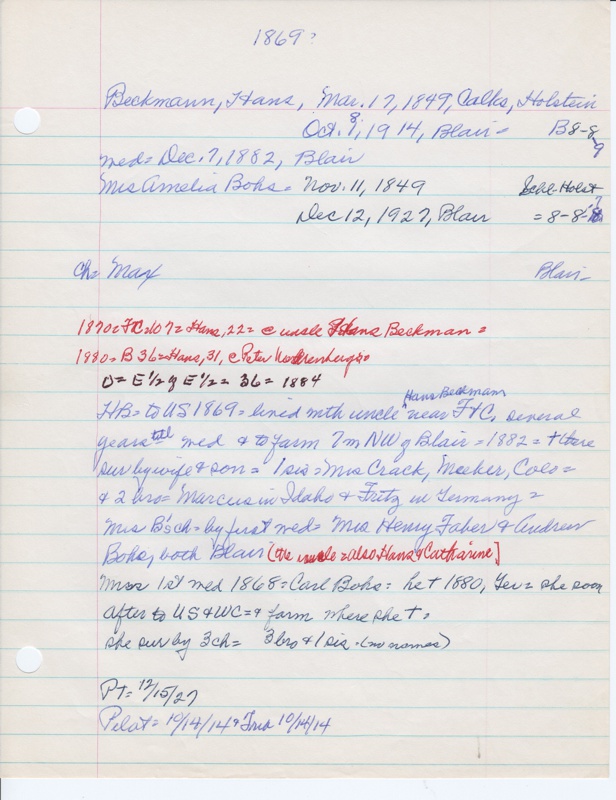 1869?
Beckmann, Hans, Mar. 17, 1849, Calks, Holstein
Oct. 8, 1914, Blair = B 8-8-9
med = Dec. 7, 1882, Blair
Mrs Amelia Bohs = Nov. 11, 1849 Schl-Holst
Dec 12, 1927, Blair = 8-8-
ch = Max Blair =
1870 = FC = 107 = Hans, 22 = c uncle Hans Beckman =
1880 = B 36 = Hans, 31, c Peter
O = E 1/2 of E 1/2 = 36 = 1884
HB = to US 1869 = lived with uncle Hans Beckmann near FtC, several
years till med & to farm 7m NW of Blair = 1882 = + there
sur by wife & son = 1 sis = Mrs Crack, Meeker, Colo =
& 2 bro = Marcus in Idaho & Fritz in Germany =
Mrs B's ch = by first med = Mrs Henry Faber & Andrew
Bohs, both Blair (the uncle = also Hans & Catharine]
Mrs 1st med 1868 = Carl Bohs = he + 1880, Ger = she soon
after to US & WC = & farm where she + =
she sur by 3 ch = 3 bro & 1 sis. (no names)
PT = 12/15/27
Pilot = 10/14/14 & Trib 10/14/14